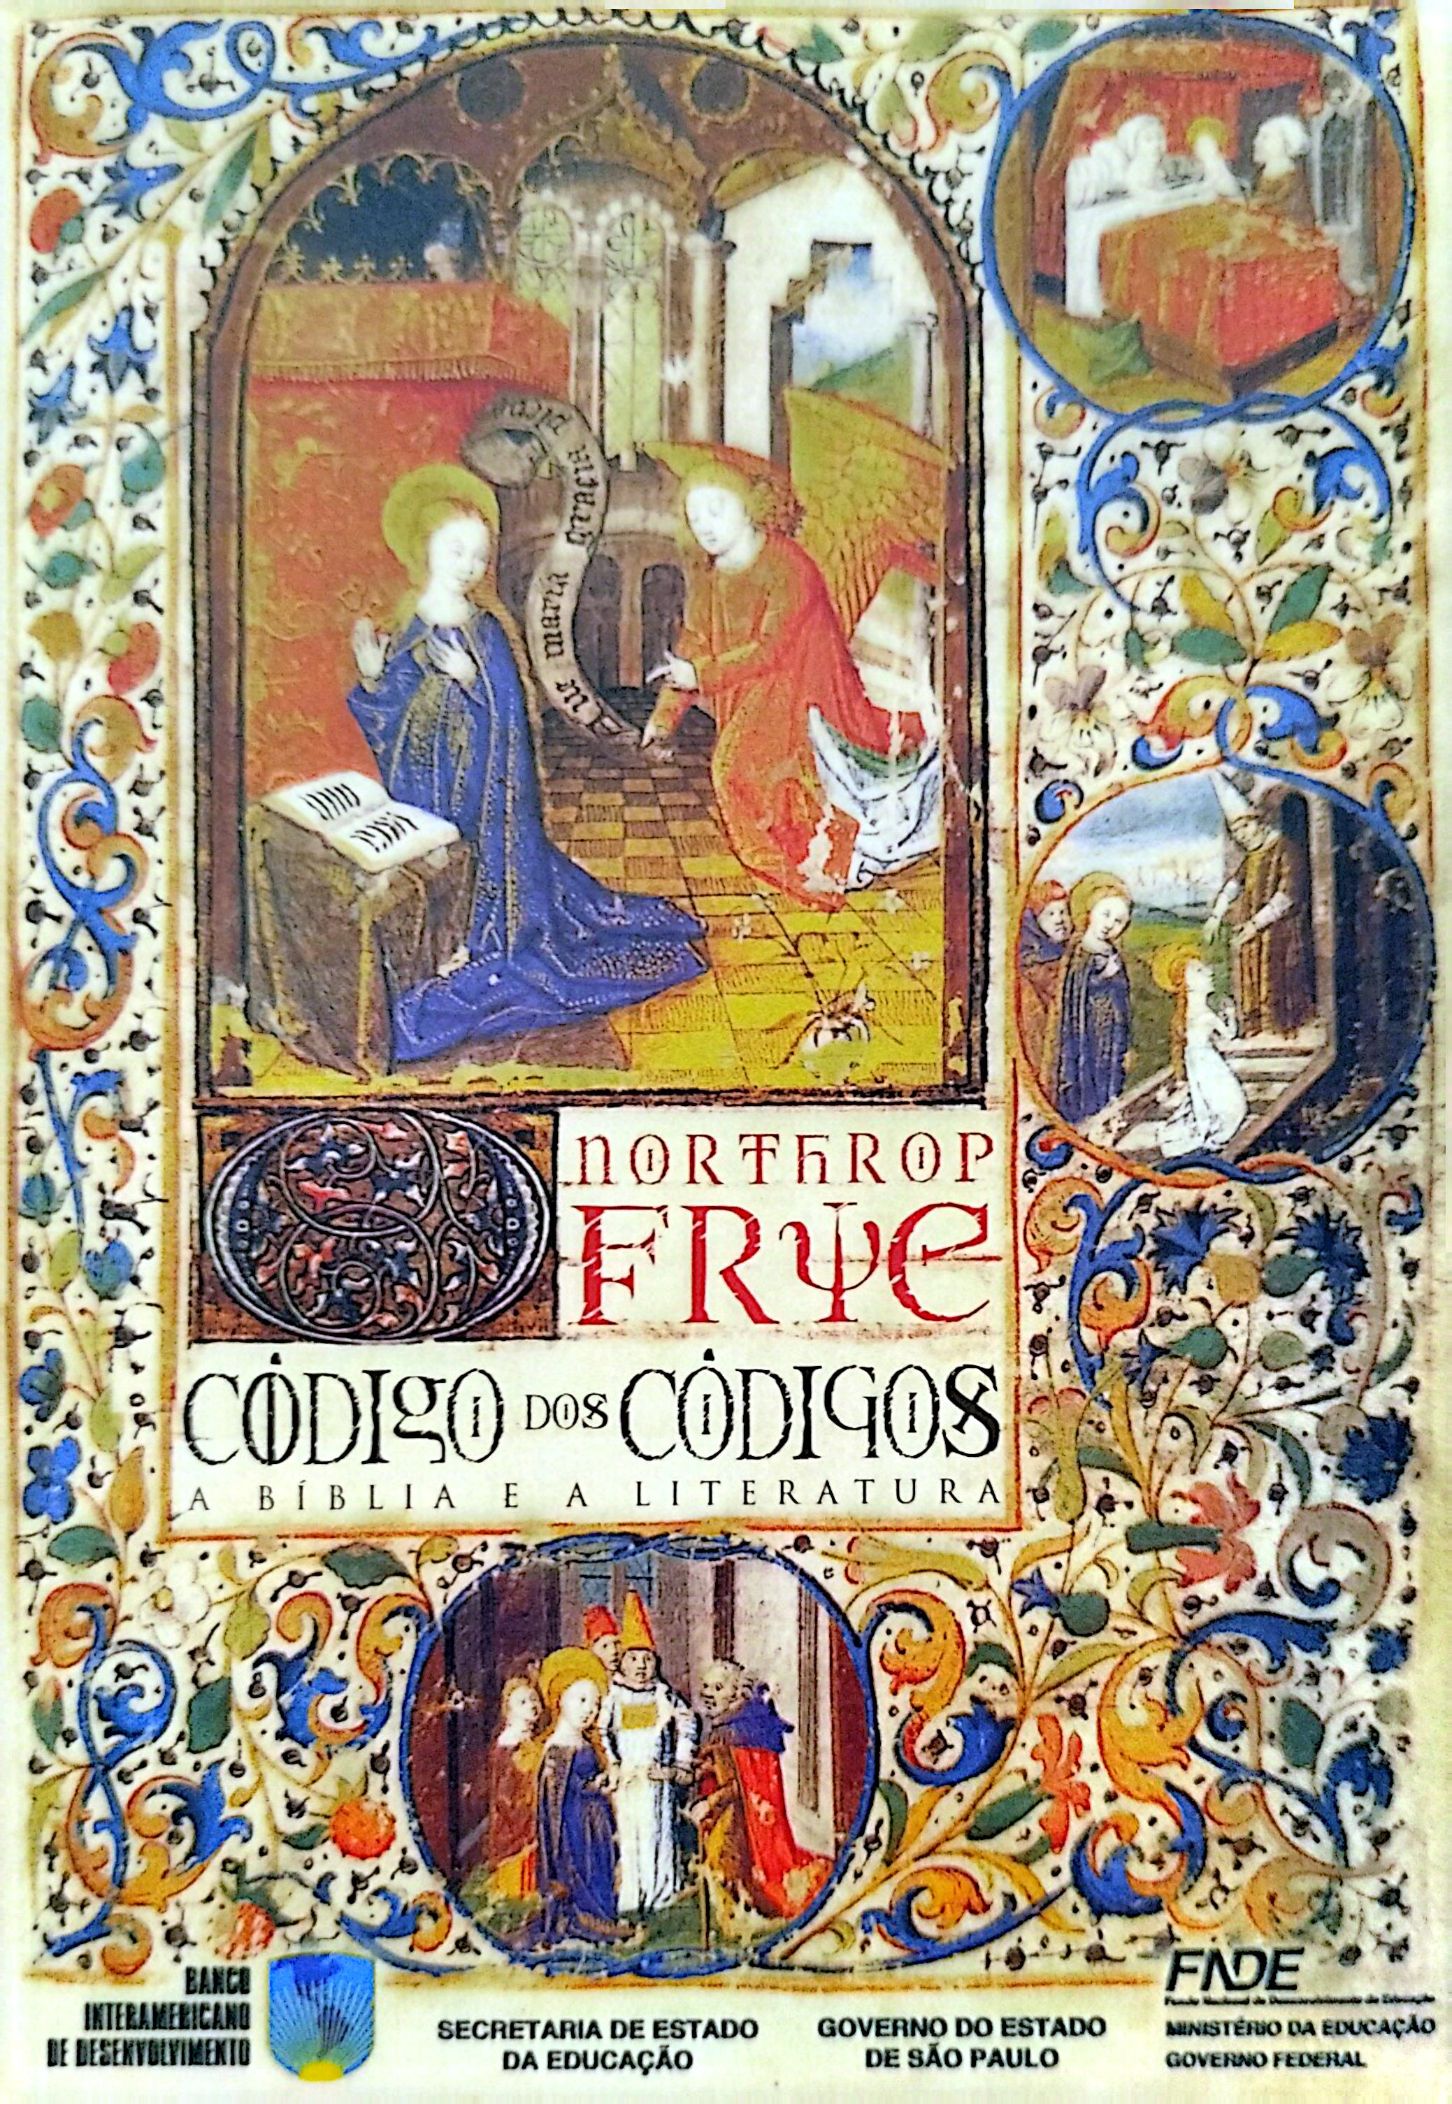 maria gracia plena
NORTHROP
FRYE
CÓDIGO DOS CÓDIGOS
A BÍBLIA E A LITERATURA
BANCO
INTERAMERICANO
DE DESENVOLVIMENTO
SECRETARIA DE ESTADO
DA EDUCAÇÃO
GOVERNO DO ESTADO
DE SÃO PAULO
FNDE
Fundo Nacional de Desenvolvimento da Educação
MINISTÉRIO DA EDUCAÇÃO
GOVERNO FEDERAL